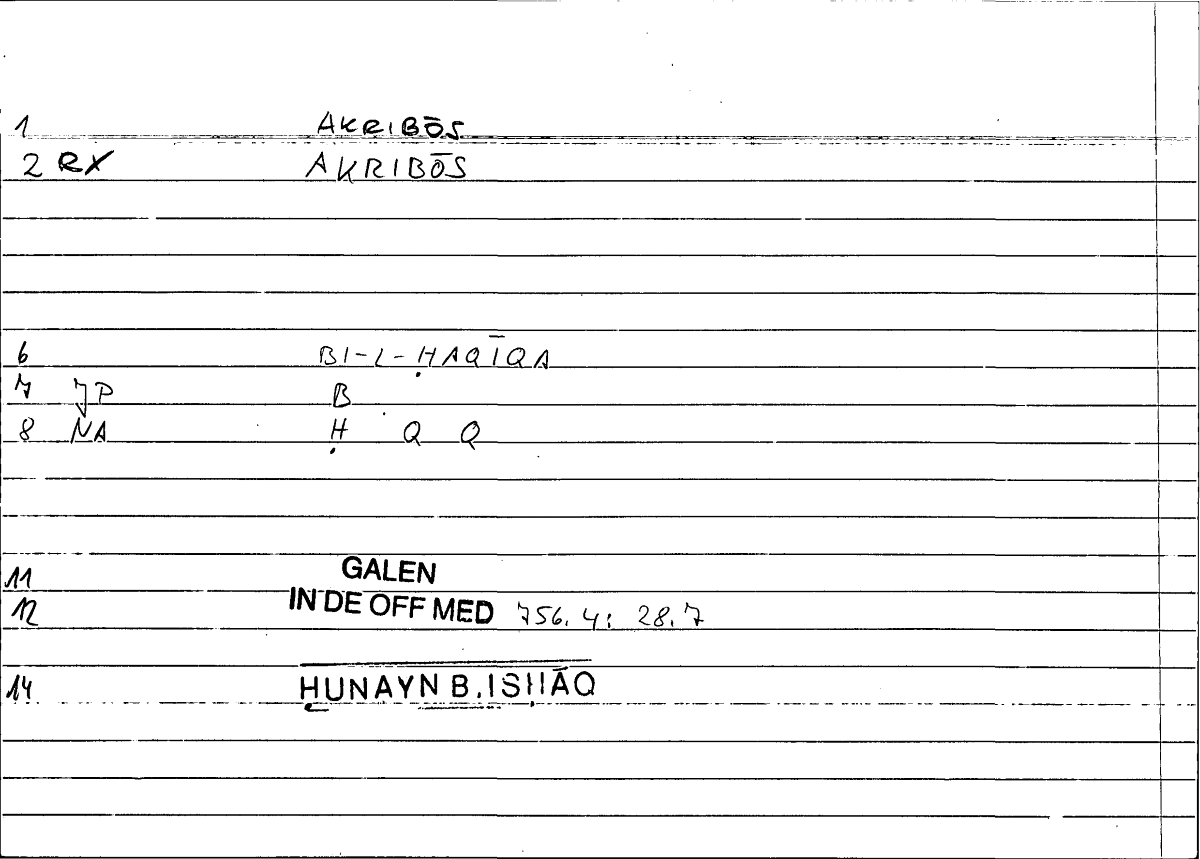 1 AKRIBŌS
2 RX AKRIBŌS
6 BI-L-ḤAQĪQA
7 JP B
8 NA Ḥ Q Q
11 GALEN
12 IN DE OFF MED 756.4: 28.7
14 ḤUNAYN B. ISḤĀQ